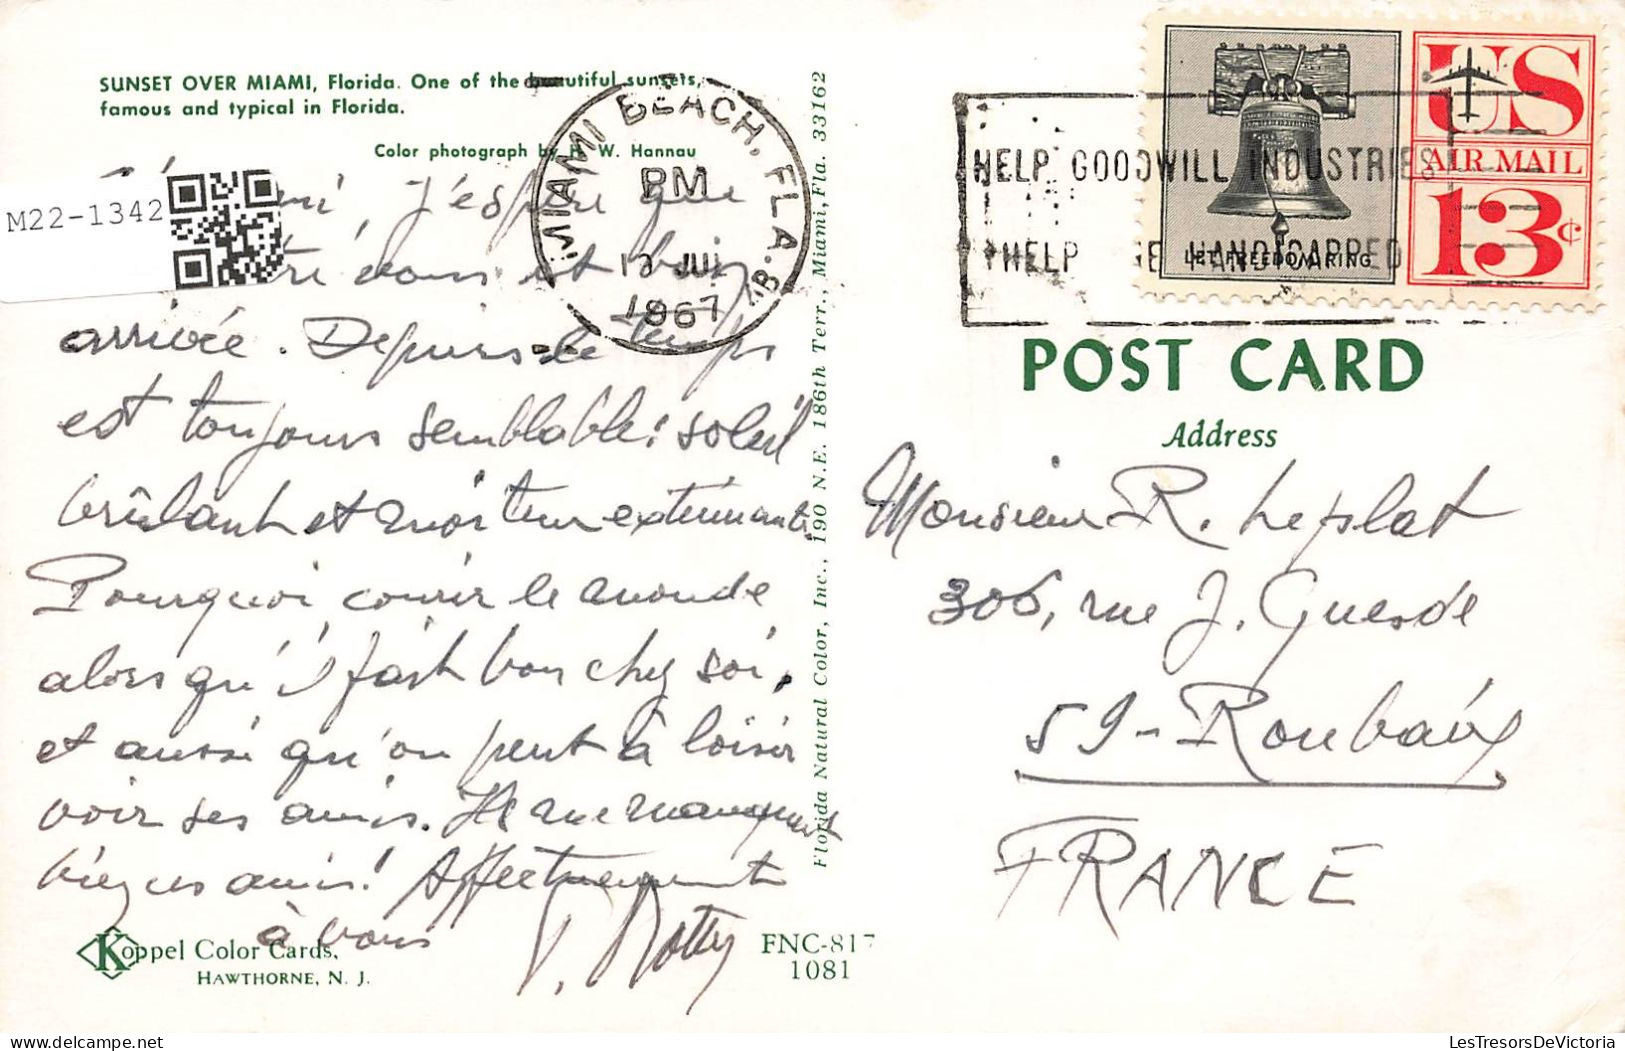 SUNSET OVER MIAMI, Florida. One of the beautiful sunsets,
famous and typical in Florida.
Color photograph by H. W. Hannau
M22-1342
j'espère que
est bien
arrivée. Depuis le temps
est toujours semblable: soleil
brûlant et moiteur exténuante.
Pourquoi courir le monde
alors qu'il fait bon chez soi,
et aussi qu'on peut à loisir
voir ses amis. Ils me manquent
bien ces amis! Affectueusement
à vous
Koppel Color Cards,
HAWTHORNE, N. J.
FNC-817
1081
Florida Natural Color, Inc., 190 N.E. 186th Terr., Miami, Fla. 33162
MIAMI BEACH, FLA.
PM
JUL
1967
HELP GOODWILL INDUSTRIES
HELP THE HANDICAPPED
LET FREEDOM RING
US
AIR MAIL
13¢
POST CARD
Address
Monsieur R. Leplat
306, rue J. Guesde
59-Roubaix
FRANCE
LesTresorsDeVictoria